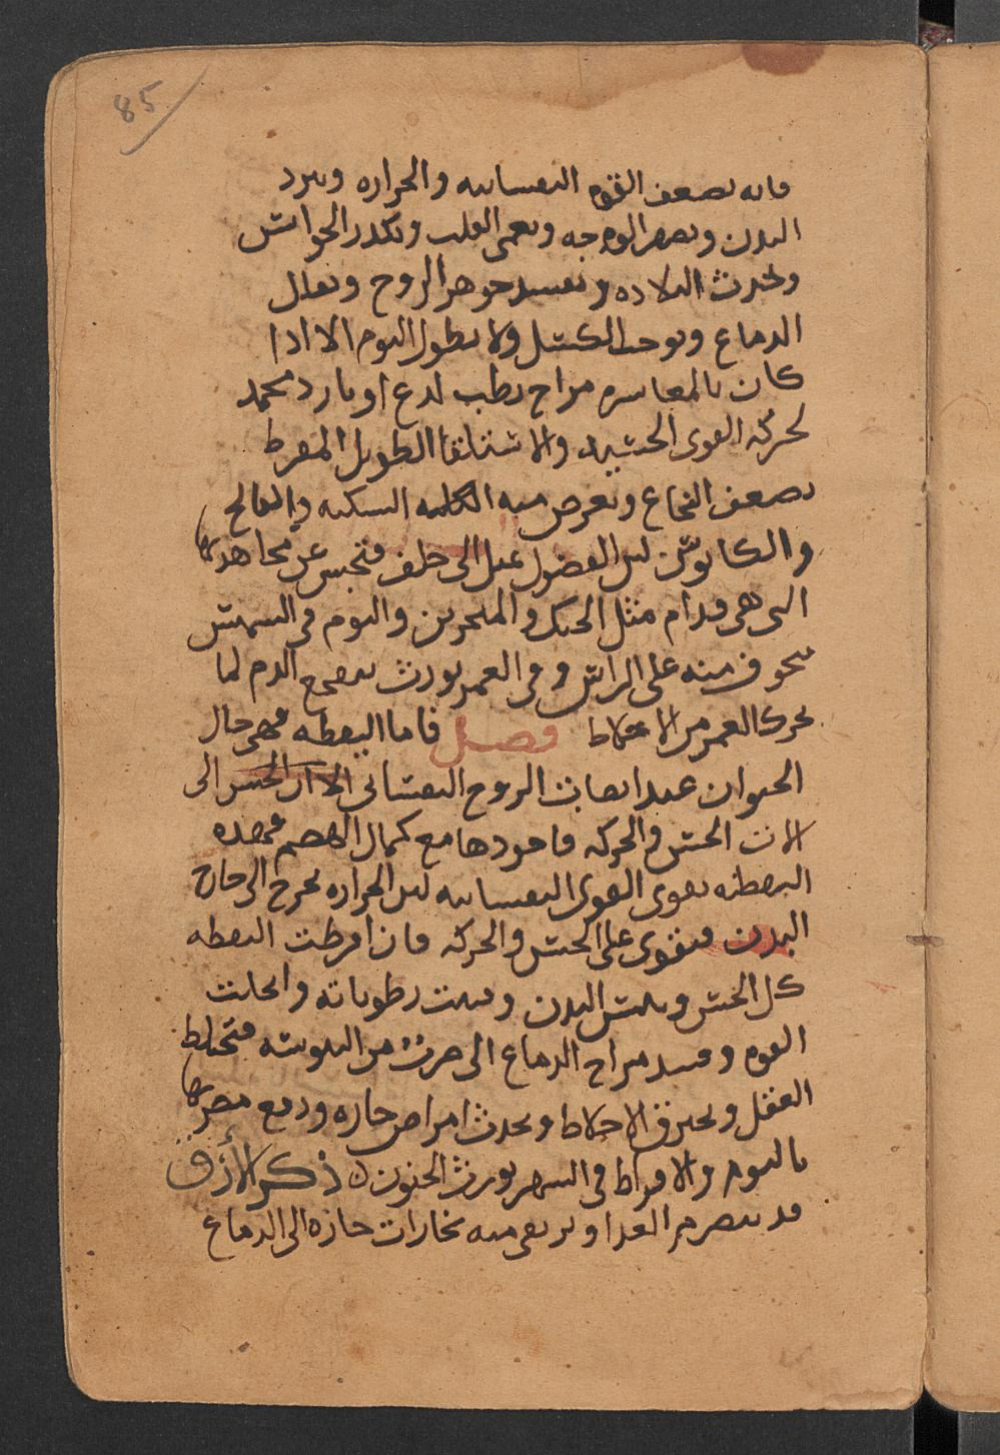 85
فانه يضعف القوه النفسانيه والحراره ويبرد
البدن ويصفر الوجه ويعمى القلب ويكدر الحواس
ويحدث البلاده ويفسد جوهر الروح
الدماغ ويوجب الكسل ولا يطول النوم الا اذا
كان بالمعا سره مزاج رطب لدع او بارد مجمد
لحركه القوى الحسيه والاستلقا الطويل المفرط
يضعف النخاع ويعرض منه السكته والفالج
والكابوس لان الفضول تميل الى خلف فتحبس عن مجاريها
التى هى قدام مثل الحنك والمنخرين والنوم فى الشمس
يخوف منه على الراس وفى القمر يورث الدم لما
يحرك القمر من الاخلاط فصل فاما اليقظه فهى حال
الحيوان عند انصباب الروح النفسانى الى
الات الحس والحركه فاجودها مع كمال الهضم فهذه
اليقظه تقوى القوى النفسانيه لان الحراره تخرج الى خارج
البدن فيقوى على الحس والحركه فان افرطت اليقظه
كل الحس ويبس البدن وفنيت رطوباته وانحلت
القوه وفسد مزاج الدماغ الى ضرب من اليبوسه فتخلط
العقل وتحرق الاخلاط ويحدث امراض حاره ودفع مضرتها
بالنوم والافراط فى السهر يورث الجنون ذكر الأرق
قد الغذا ويرتقى منه بخارات حاره الى الدماغ